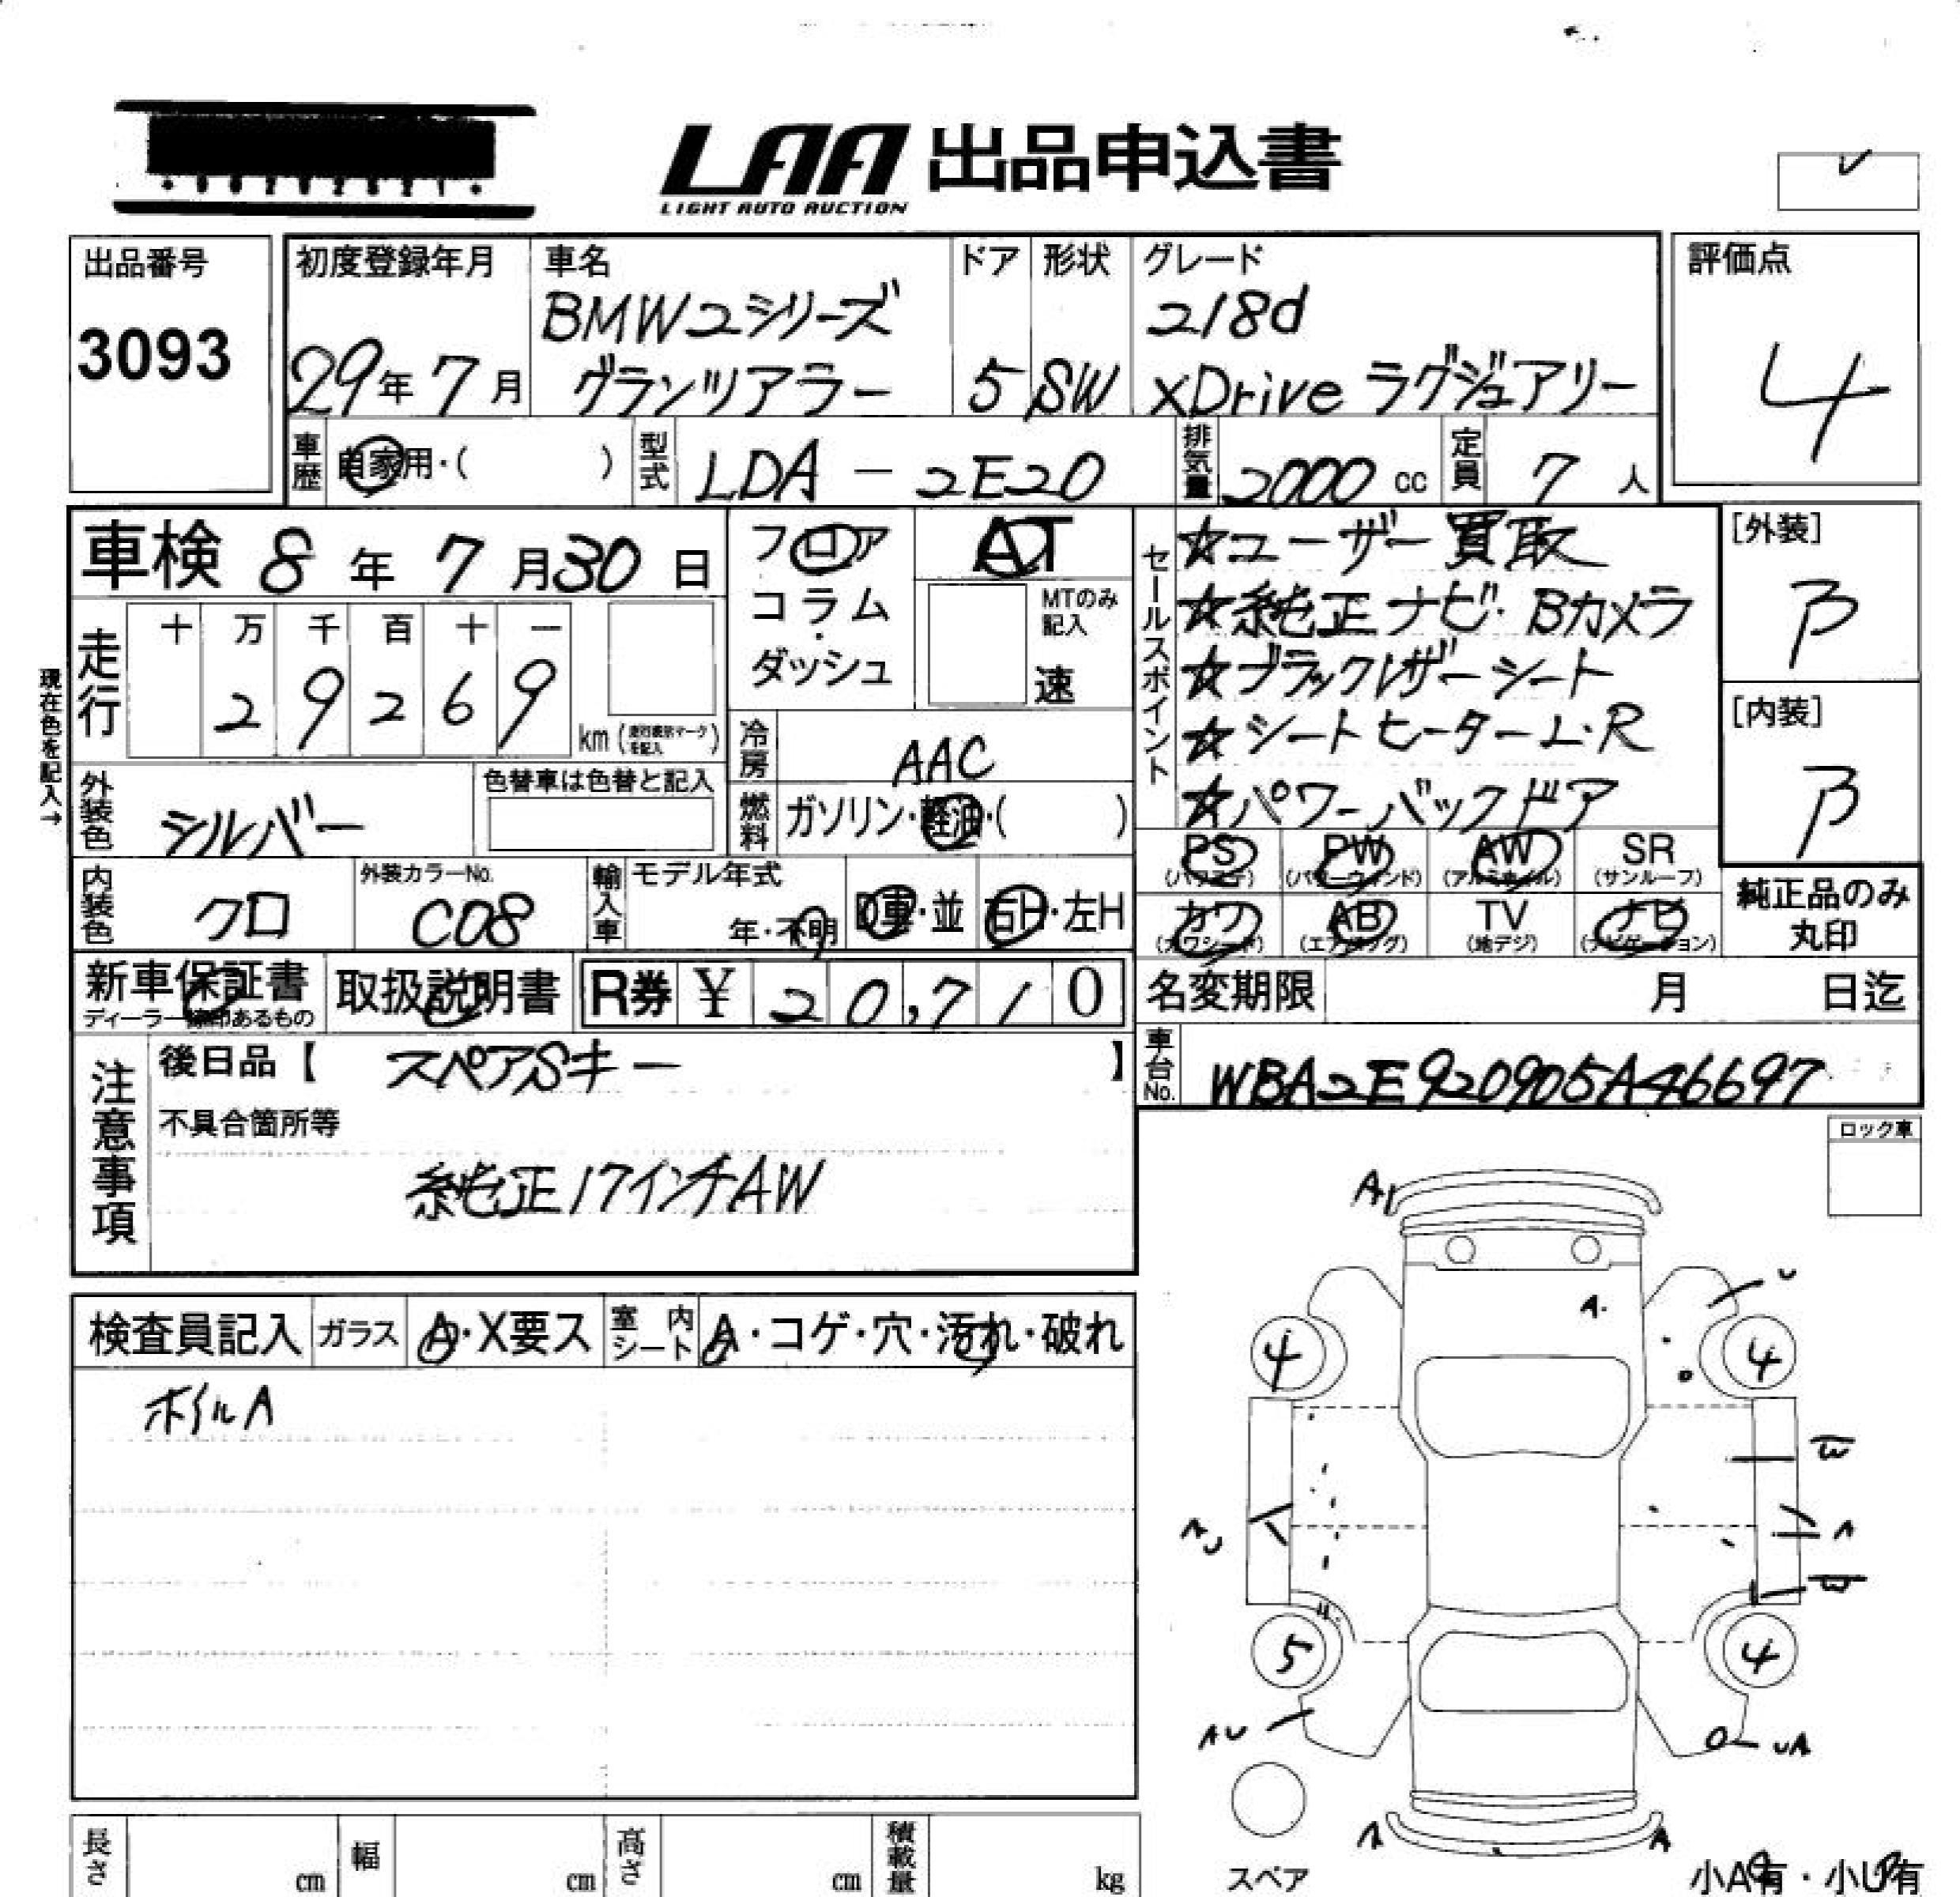 LAA 出品申込書
LIGHT AUTO AUCTION
出品番号
3093
初度登録年月
29年7月
車名
BMW2シリーズ
グランツアラー
ドア
5
形状
SW
グレード
218d
xDrive ラグジュアリー
評価点
4
車歴 自家用・( )
型式 LDA-2E20
排気量 2000 cc
定員 7 人
車検 8年7月30日
フロア
コラム
・
ダッシュ
AT
MTのみ
記入
速
走行
十 万 千 百 十 一
2 9 2 6 9
km
現在色を記入→
外装色 シルバー
色替車は色替と記入
冷房 AAC
燃料 ガソリン・軽油・( )
内装色 クロ
外装カラーNo.
C08
輸入車
モデル年式
年・不明
D車・並
右H・左H
セールスポイント
☆ユーザー買取
☆純正ナビ・Bカメラ
☆ブラックレザーシート
☆シートヒーターL・R
☆パワーバックドア
[外装]
β
[内装]
β
PS (パワステ)
PW (パワーウィンド)
AW (アルミホイル)
SR (サンルーフ)
カワ (カワシート)
AB (エアバッグ)
TV (地デジ)
ナビ (ナビゲーション)
純正品のみ
丸印
新車保証書
取扱説明書
R券 ¥ 20,710
名変期限 月 日迄
車台No. WBA2E920905A46697
注意事項
後日品【 スペアSキー 】
不具合箇所等
純正17インチAW
ロック車
検査員記入
ガラス A・X要ス
室内シート A・コゲ・穴・汚れ・破れ
ホイルA
A1
A
U
4
4
W
A
W
5
4
AU
UA
A
A
スペア
小A有・小U有
長さ cm
幅 cm
高さ cm
積載量 kg